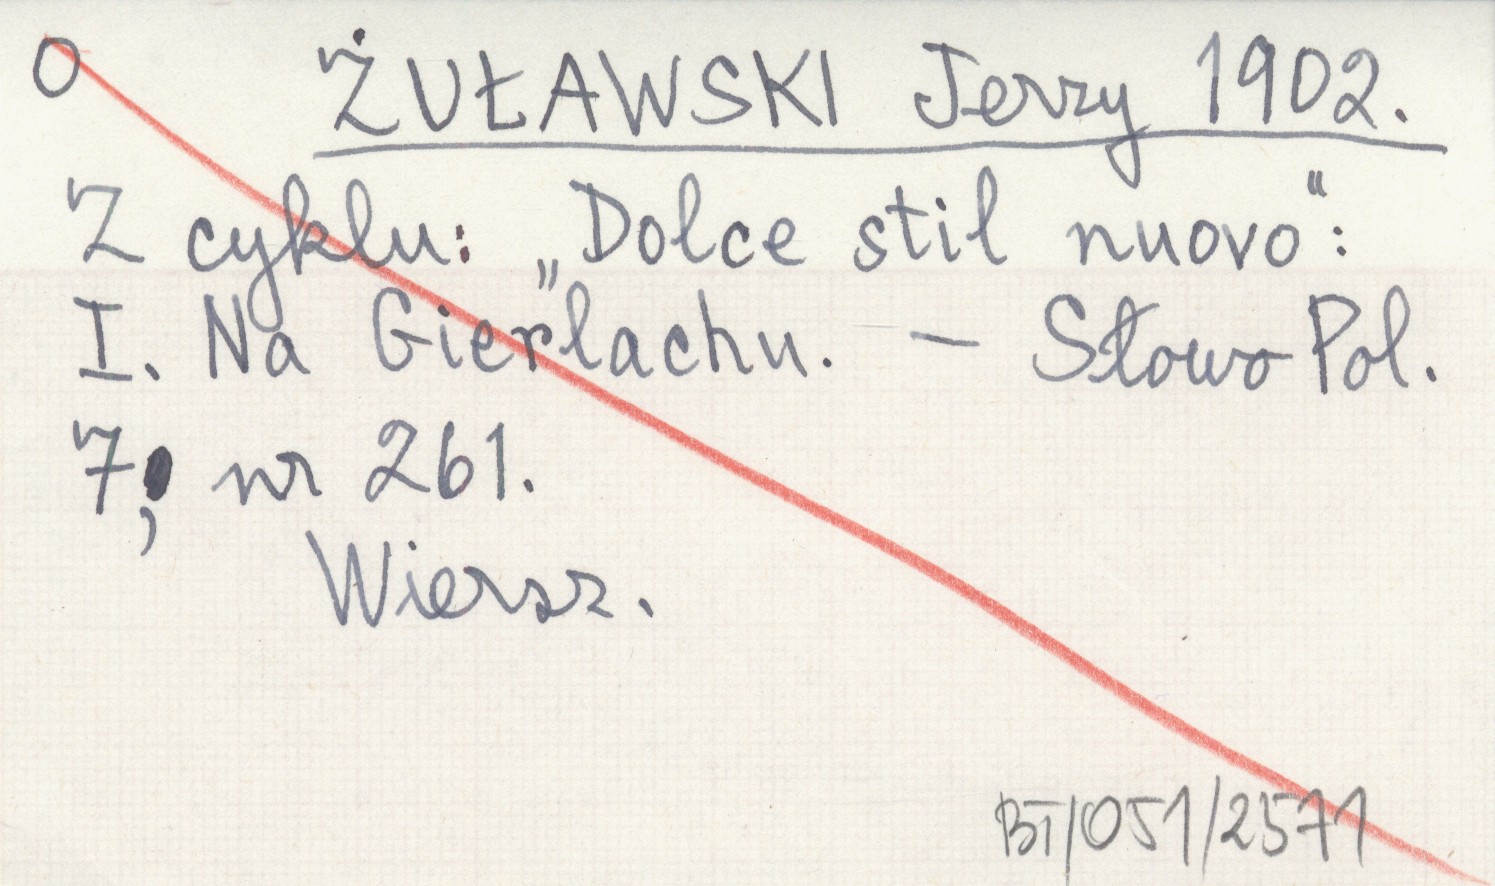 O ŻUŁAWSKI Jerzy 1902.
Z cyklu: „Dolce stil nuovo“:
I. Na Gierlachu. — Słowo Pol.
7, nr 261.
Wiersz.
BT/051/2571